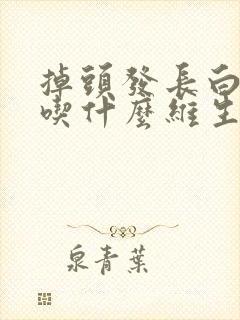 掉頭發長白
喫什麼維生
泉青葉